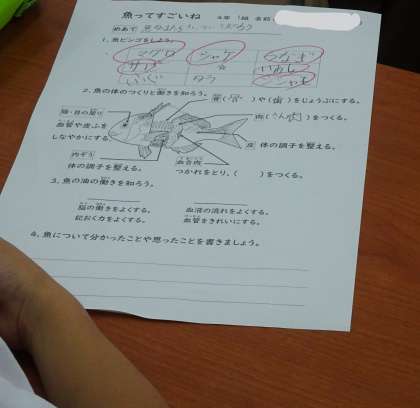 魚ってすごいね 4年 1組 名前
めあて
1. 魚ビンゴをしよう。
マグロ シャケ うなぎ
サバ ☆
タラ
2. 魚の体のつくりと働きを知ろう。
骨(骨)や(歯)をじょうぶにする。
頭・目の周り
血管や皮ふを
しなやかにする
肉(きん肉)をつくる。
皮 体の調子を整える。
内ぞう
体の調子を整える。
血合肉
つかれをとり,( )をつくる。
3. 魚の油の働きを知ろう。
脳の働きをよくする。
記おく力をよくする。
血液の流れをよくする。
血管をきれいにする。
4. 魚について分かったことや思ったことを書きましょう。